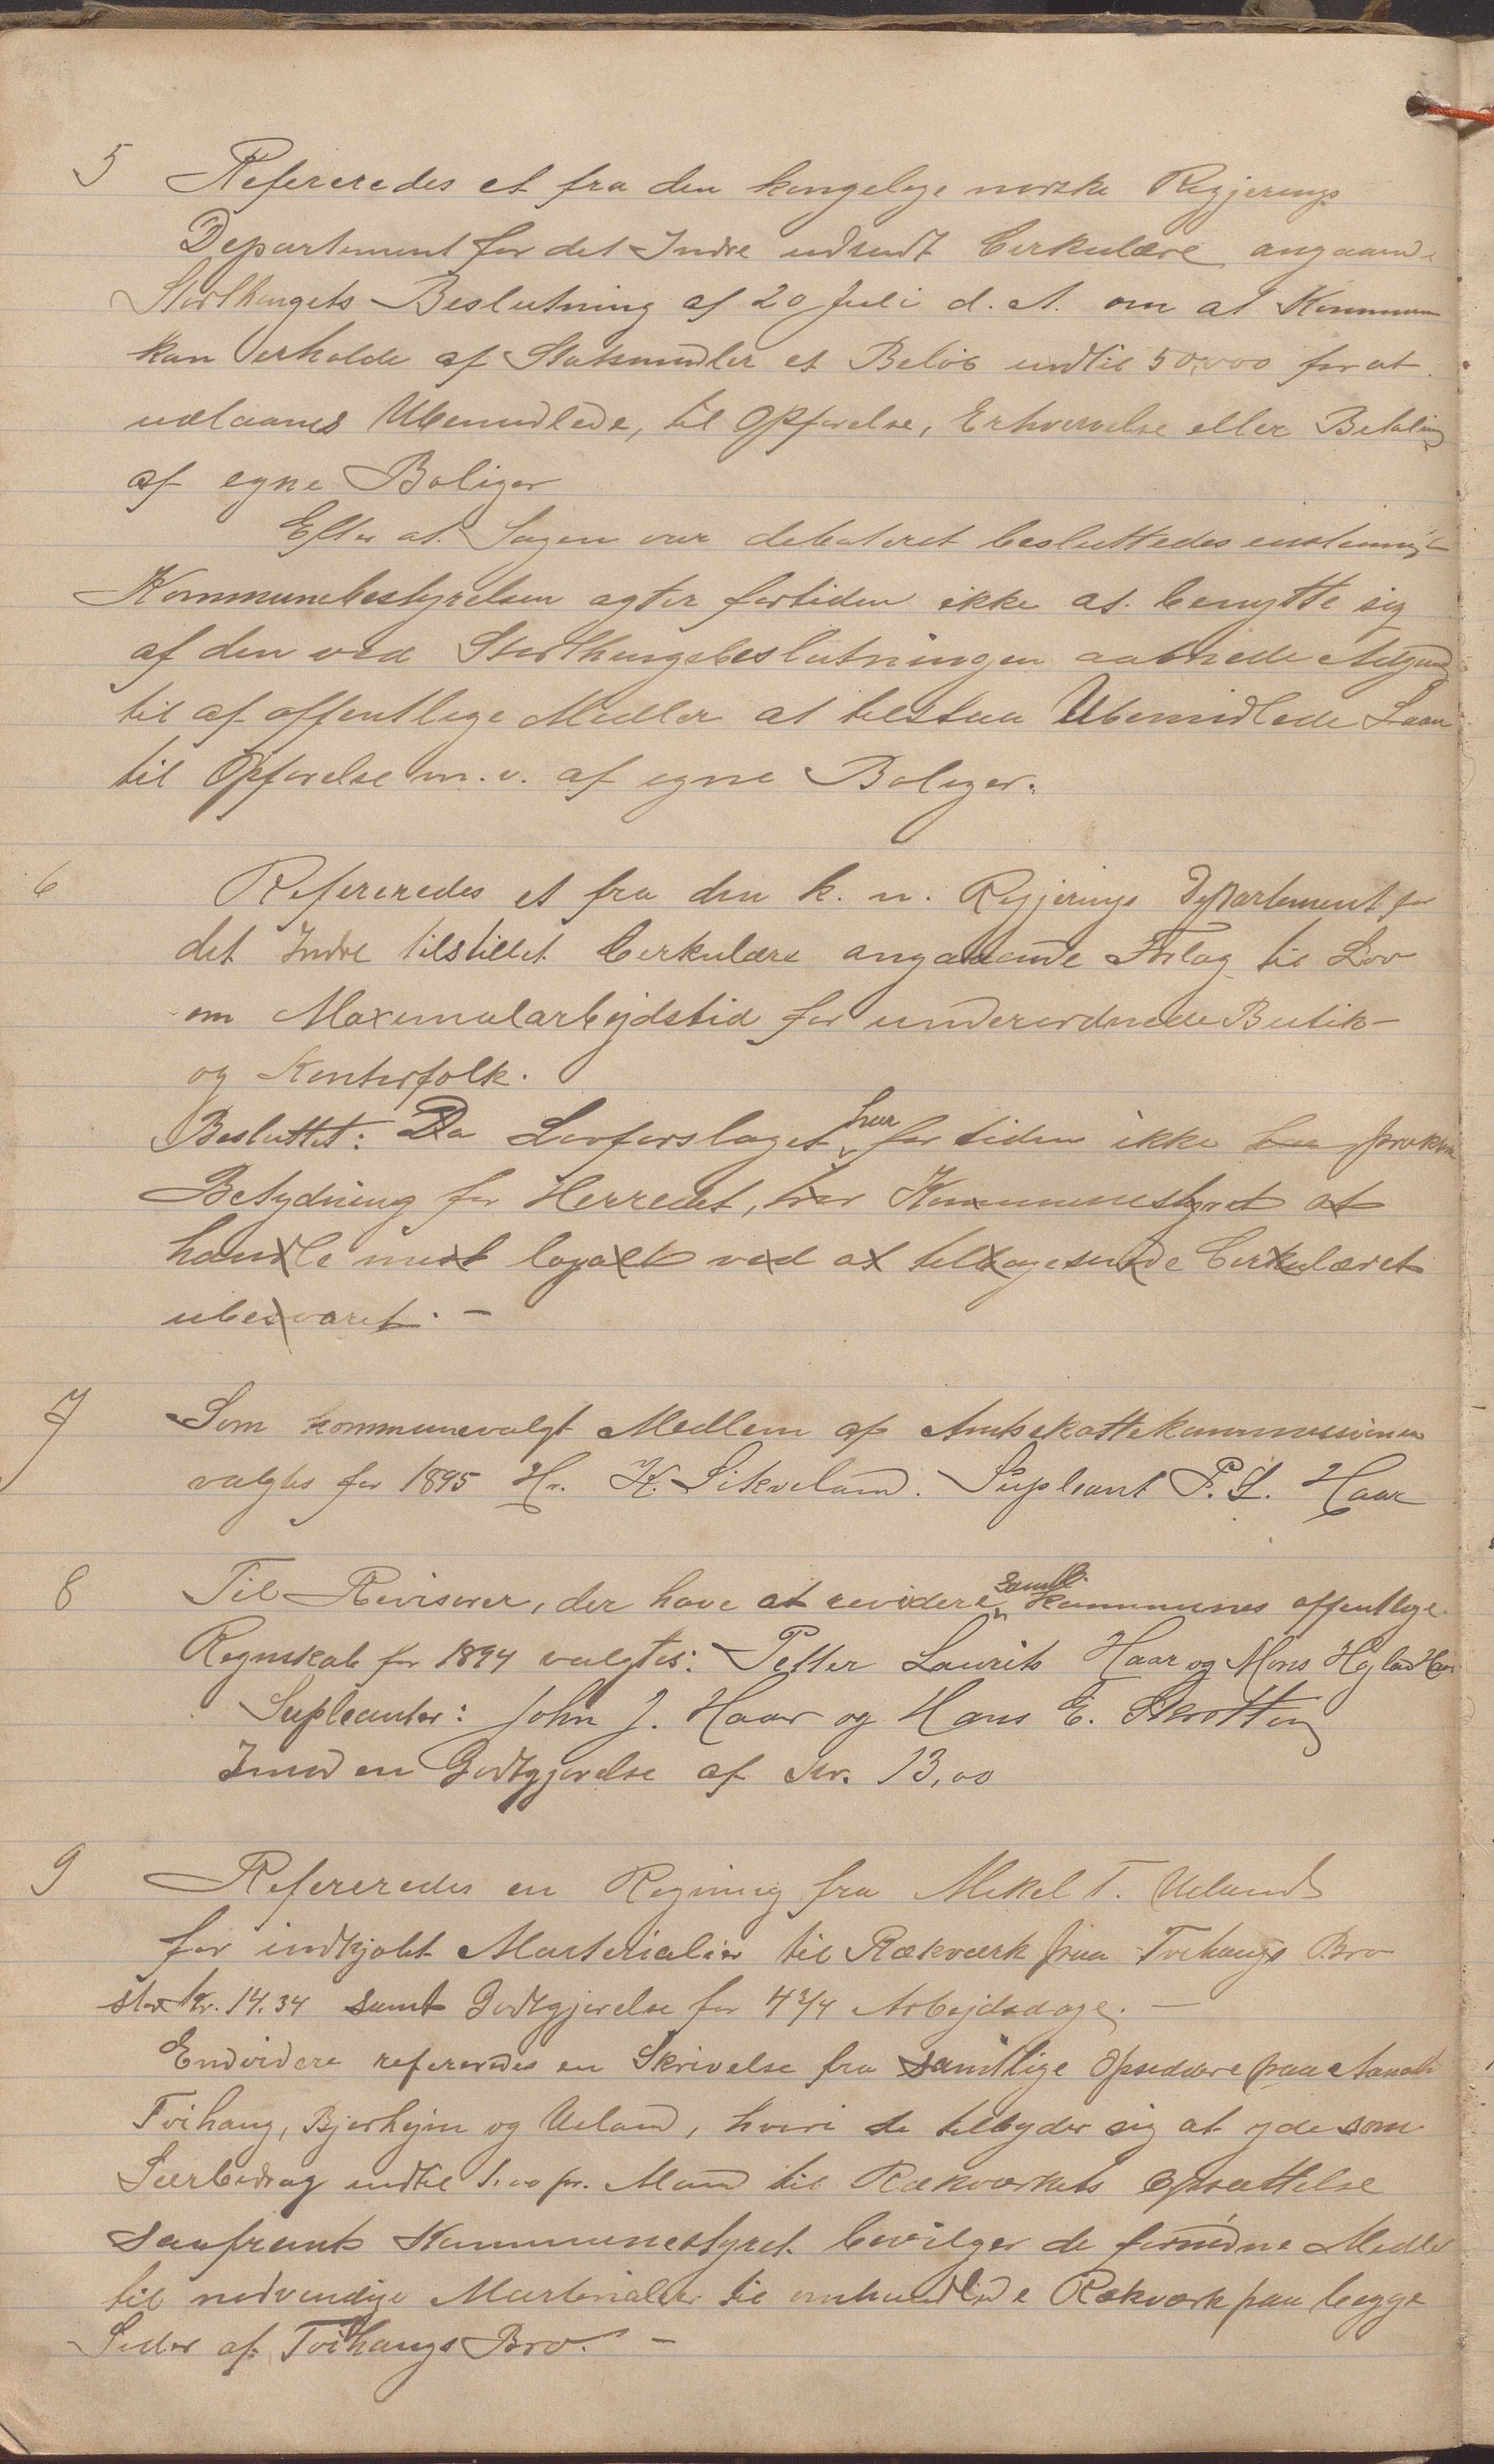 5 Refereredes et fra den kongelige norske Regjerings
Departement for det Indre udsendt Cirkulære angaaende
Storthingets Beslutning af 20 Juli d. A. om at Kommunen
kan erholde af Statsmidler et Beløb indtil 50,000 for at
udlaanes Ubemidlede, til Opførelse, Erhvervelse eller Betaling
af egne Boliger
Efter at Sagen var debateret besluttedes enstemmigt
Kommunebestyrelsen agter fortiden ikke at benytte sig
af den ved Storthingsbeslutningen aabnede Adgang
til af offentlige Midler at tilstaa Ubemidlede Laan
til Opførelse m. v. af egne Boliger.
6 Refereredes et fra den k. n. Regjerings Departement for
det Indre tilstillet Cirkulære angaaende Forlag til Lov
om Maximalarbejdstid for underordnede Butik-
og Kontorfolk.
Besluttet: Da Lovforslaget har for tiden ikke har praktisk
Betydning for Herredet, tror Kommunestyret at
handle mest loyalt ved at tilbagesende Cirkulæret
ubesvaret. -
7 Som kommunevalgt Medlem af Amtsskattekommissionen
valgtes for 1895 Hr. K. Sikveland. Supleant P. L. Haar
8 Til Revisorer, der have at revidere samtl. Kommunes offentlige
Regnskab for 1894 valgtes: Petter Laurits Haar og Mons Hgland Haar
Supleanter: John J. Haar og Hans E.
Imod en Godtgjørelse af Kr. 13,00
9 Refereredes en Regning fra Mikel T. Ueland
for indkjøbt Materialier til Rækværk paa Tvihaugs Bro
stor Kr. 14.34 samt Godtgjørelse for 4 3/4 Arbejdsdage. -
Endvidere refereredes en Skrivelse fra samtlige Opsiddere paa
Tvihaug, Bjorhejm og Ueland, hvori de tilbyder sig at yde som
Særbidrag indtil 1.00 pr. Mand til Rækværkets Opsættelse
saafremt Kommunestyret bevilger de fornødne Midler
til nødvendige Materialier til omhandlede Rækværk paa begge
Sider af Tvihaugs Bro. -